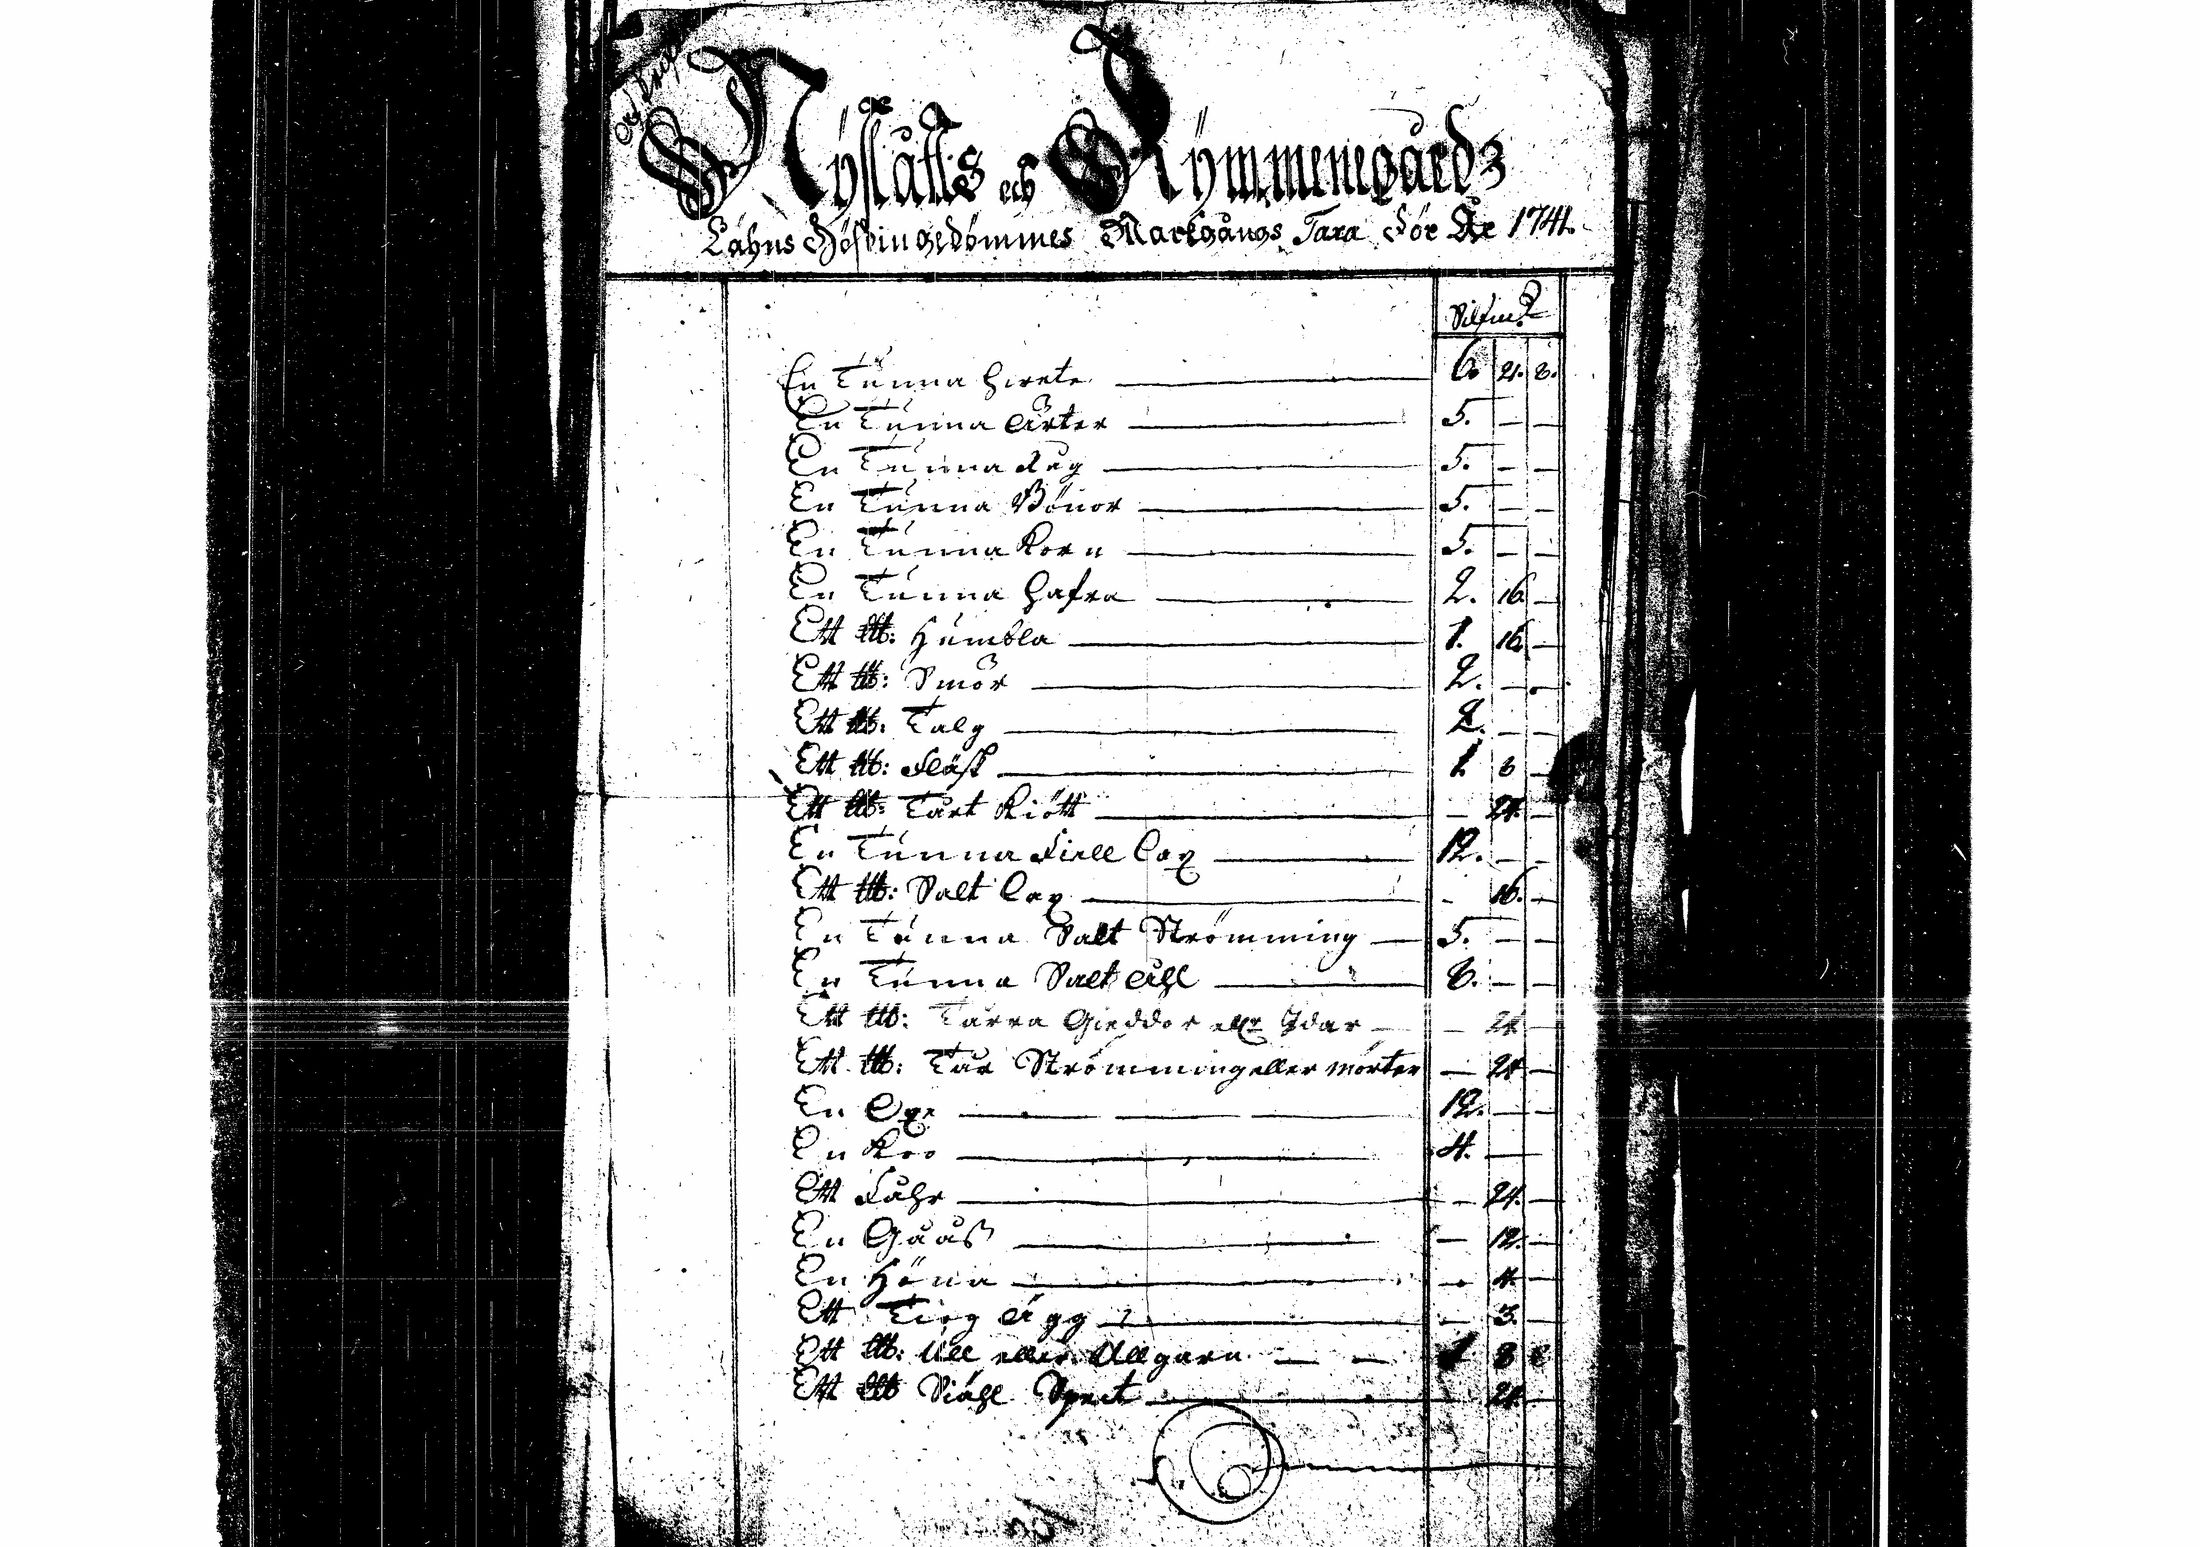 Nyslátts och Kymmenegårds
Lähns Höfdingedömmes Markgångs Taxa För År 1741.
Silfm:t
En Tunna Hvete 6. 21. 8.
En Tunna Ärter 5. — —
En Tunna Råg 5. — —
En Tunna Bönor 5. — —
En Tunna Korn 5. — —
En Tunna Hafra 2. 16. —
Ett LU: Humbla 1. 16. —
Ett LU: Smör 2. — —
Ett LU: Talg 2. — —
Ett LU: Fläsk 1. 8 —
Ett LU: Tårt Kiött — 24. —
En Tunna Fiell Lax 12. — —
Ett LU: Salt Lax - 16. —
En Tunna Salt Strömming 5. — —
En Tunna Salt Ähl 8. — —
Ett LU: Tårra Gieddor eller Idar — 24 —
Ett LU: Tår Strömming eller mörter — 24 —
En Oxe 12. — —
En Koo 4. —
Ett Fåhr — 24. —
En Gåås — 12. —
En Höna — 4. —
Ett Tiog Ägg — 3. —
Ett LU: Ull eller Ullgarn 1 8
Ett LU Siähl Speck 24. —